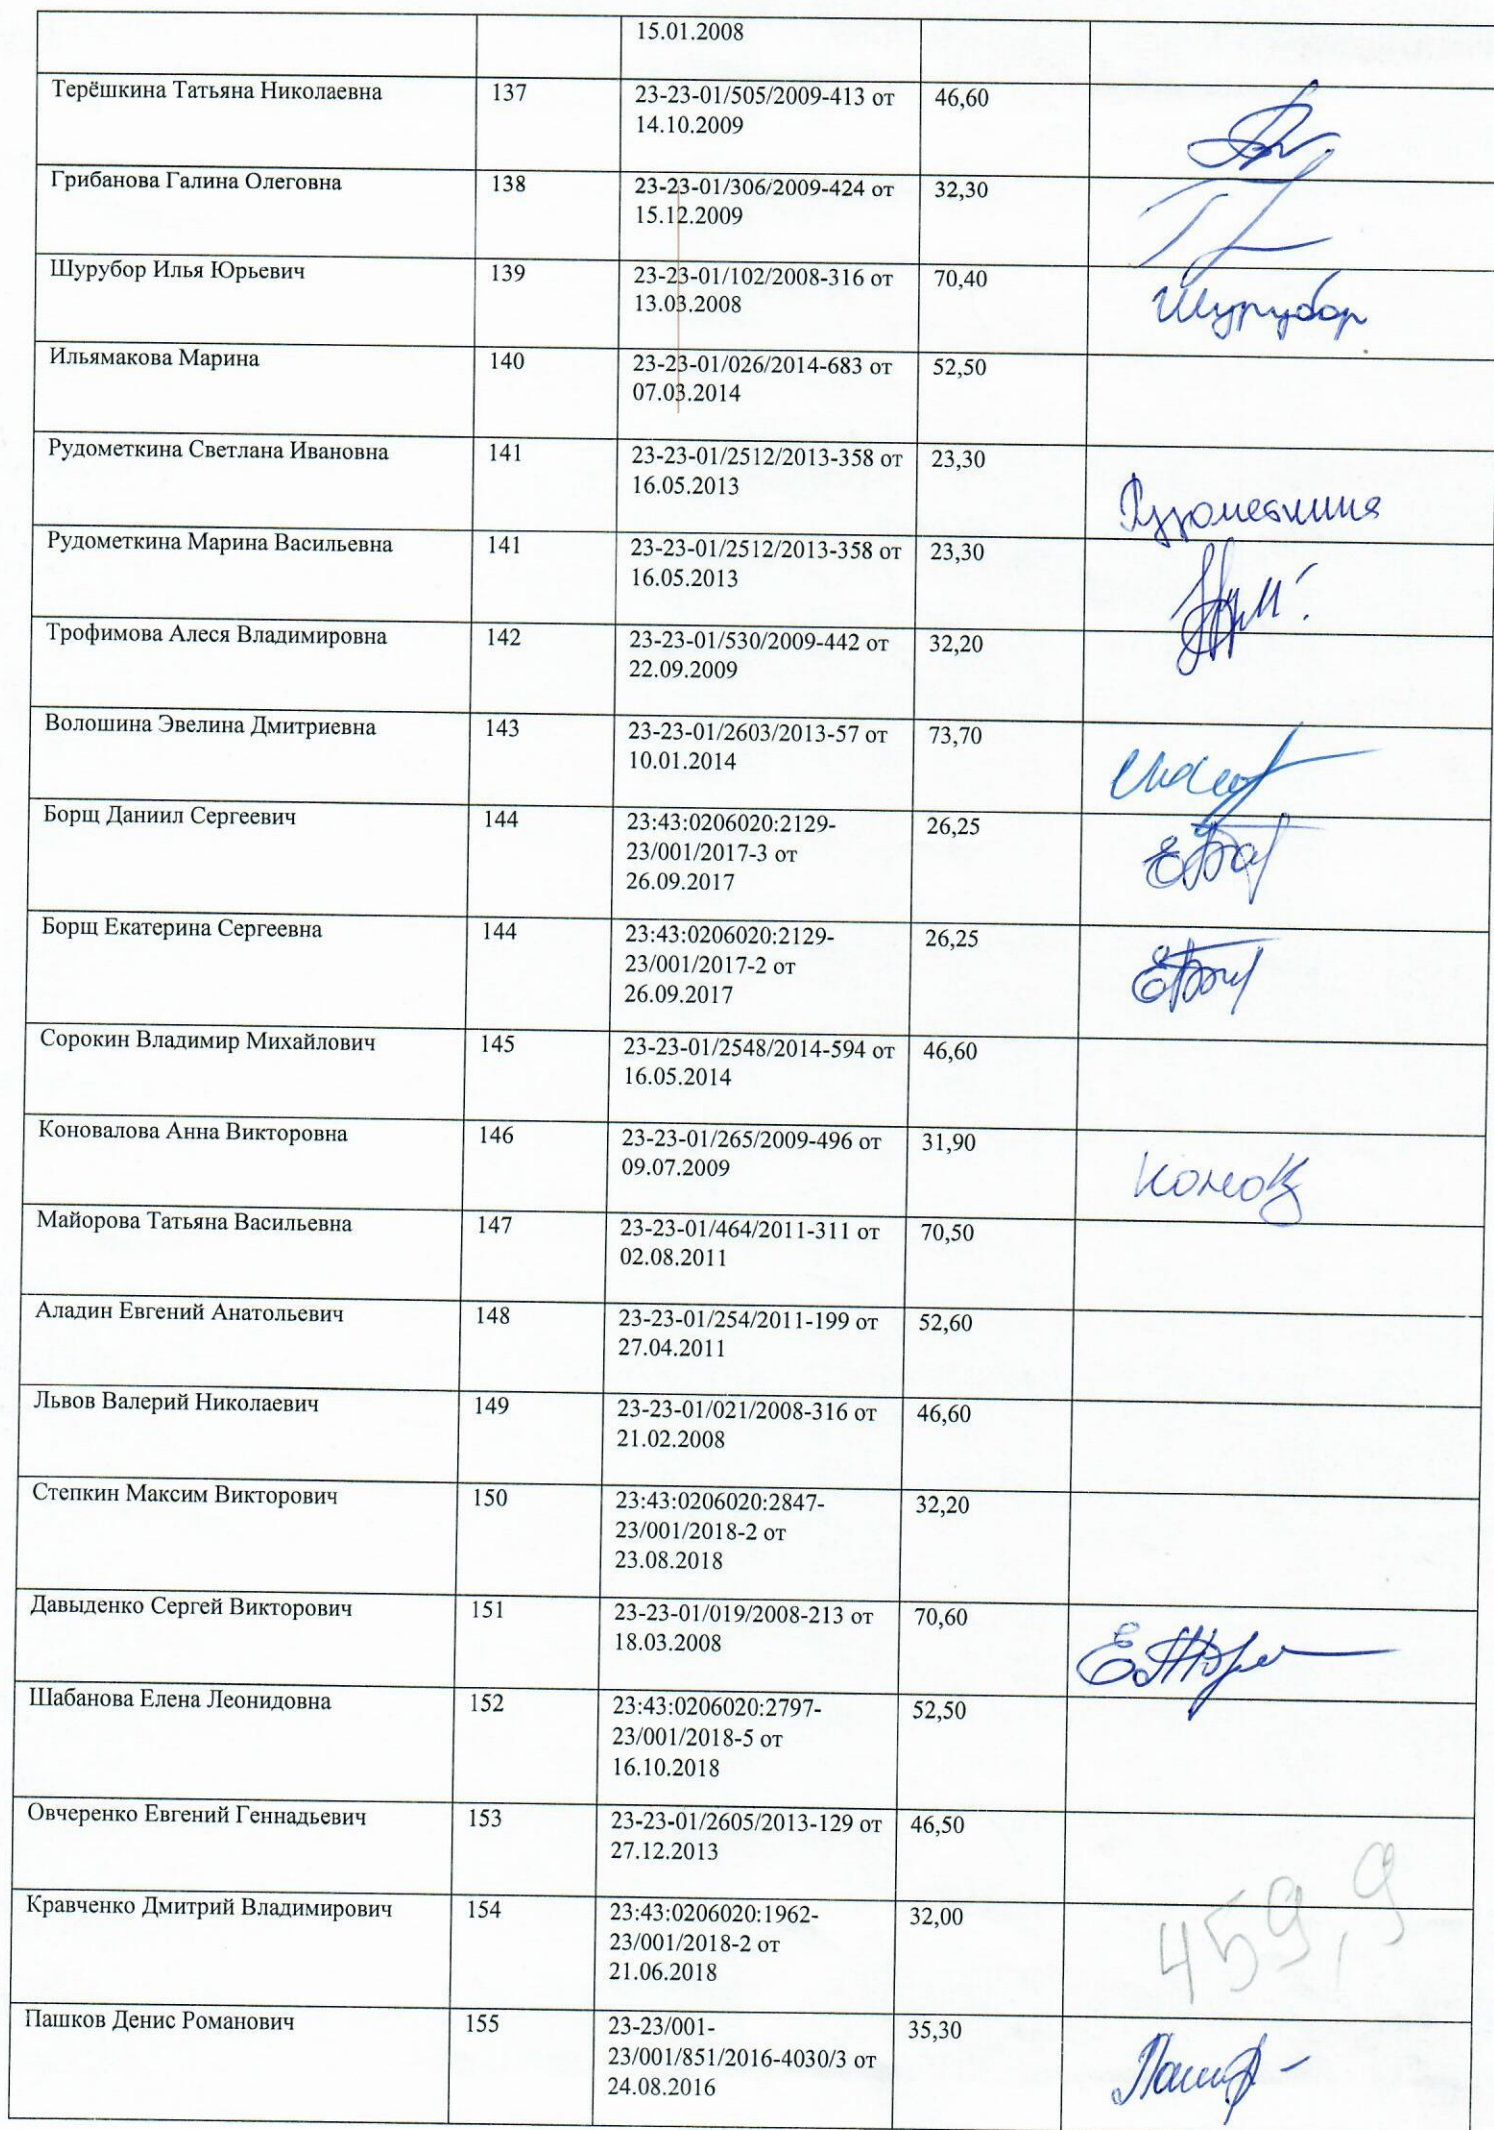 15.01.2008
Терёшкина Татьяна Николаевна 137 23-23-01/505/2009-413 от 46,60
14.10.2009
Грибанова Галина Олеговна 138 23-23-01/306/2009-424 от 32,30
15.12.2009
Шурубор Илья Юрьевич 139 23-23-01/102/2008-316 от 70,40
13.03.2008
Шурубор
Ильямакова Марина 140 23-23-01/026/2014-683 от 52,50
07.03.2014
Рудометкина Светлана Ивановна 141 23-23-01/2512/2013-358 от 23,30
16.05.2013
Рудометкина Марина Васильевна 141 23-23-01/2512/2013-358 от 23,30
16.05.2013
Трофимова Алеся Владимировна 142 23-23-01/530/2009-442 от 32,20
22.09.2009
Волошина Эвелина Дмитриевна 143 23-23-01/2603/2013-57 от 73,70
10.01.2014
Борщ Даниил Сергеевич 144 23:43:0206020:2129- 26,25
23/001/2017-3 от
26.09.2017
Борщ Екатерина Сергеевна 144 23:43:0206020:2129- 26,25
23/001/2017-2 от
26.09.2017
Сорокин Владимир Михайлович 145 23-23-01/2548/2014-594 от 46,60
16.05.2014
Коновалова Анна Викторовна 146 23-23-01/265/2009-496 от 31,90
09.07.2009
Майорова Татьяна Васильевна 147 23-23-01/464/2011-311 от 70,50
02.08.2011
Аладин Евгений Анатольевич 148 23-23-01/254/2011-199 от 52,60
27.04.2011
Львов Валерий Николаевич 149 23-23-01/021/2008-316 от 46,60
21.02.2008
Степкин Максим Викторович 150 23:43:0206020:2847- 32,20
23/001/2018-2 от
23.08.2018
Давыденко Сергей Викторович 151 23-23-01/019/2008-213 от 70,60
18.03.2008
Шабанова Елена Леонидовна 152 23:43:0206020:2797- 52,50
23/001/2018-5 от
16.10.2018
Овчеренко Евгений Геннадьевич 153 23-23-01/2605/2013-129 от 46,50
27.12.2013
Кравченко Дмитрий Владимирович 154 23:43:0206020:1962- 32,00
23/001/2018-2 от
21.06.2018
459,9
Пашков Денис Романович 155 23-23/001- 35,30
23/001/851/2016-4030/3 от
24.08.2016